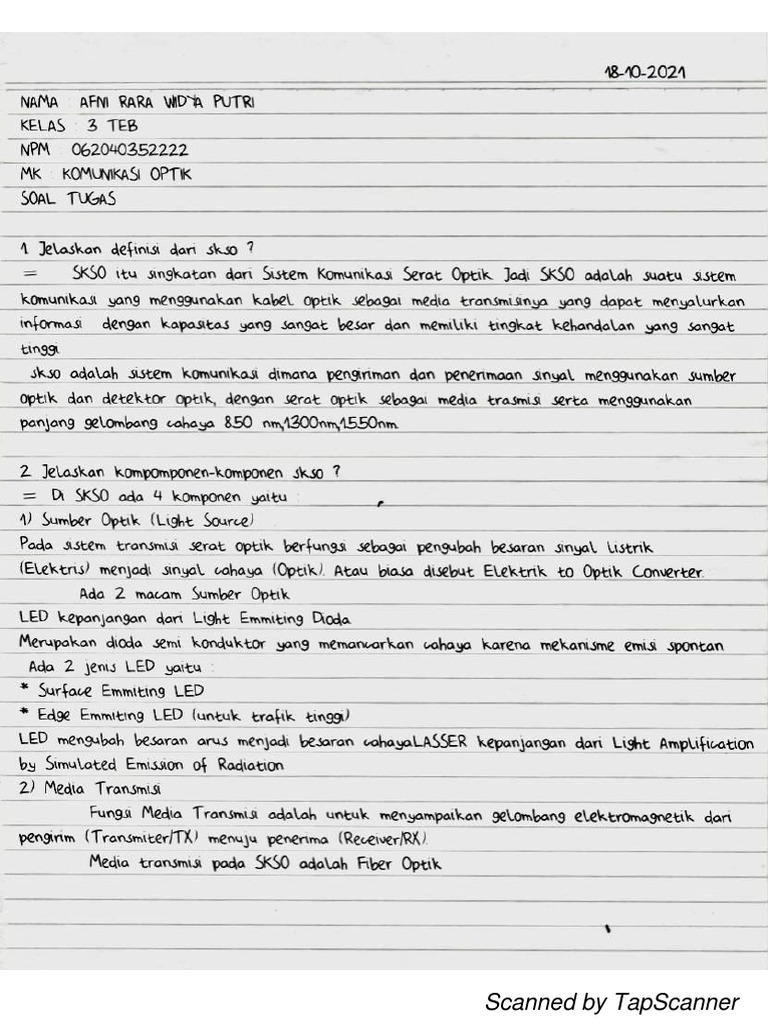 18-10-2021
NAMA : AFNI RARA WIDYA PUTRI
KELAS : 3 TEB
NPM : 062040352222
MK : KOMUNIKASI OPTIK
SOAL TUGAS
1 Jelaskan definisi dari skso ?
= SKSO itu singkatan dari Sistem Komunikasi Serat Optik Jadi SKSO adalah suatu sistem
komunikasi yang menggunakan kabel optik sebagai media transmisinya yang dapat menyalurkan
informasi dengan kapasitas yang sangat besar dan memiliki tingkat kehandalan yang sangat
tinggi
skso adalah sistem komunikasi dimana pengiriman dan penerimaan sinyal menggunakan sumber
optik dan detektor optik, dengan serat optik sebagai media trasmisi serta menggunakan
panjang gelombang cahaya 850 nm,1300nm,1550nm
2 Jelaskan kompomponen-komponen skso ?
= Di SKSO ada 4 komponen yaitu :
1) Sumber Optik (Light Source)
Pada sistem transmisi serat optik berfungsi sebagai pengubah besaran sinyal listrik
(Elektris) menjadi sinyal cahaya (Optik). Atau biasa disebut Elektrik to Optik Converter.
Ada 2 macam Sumber Optik
LED kepanjangan dari Light Emmiting Dioda
Merupakan dioda semi konduktor yang memancarkan cahaya karena mekanisme emisi spontan
Ada 2 jenis LED yaitu :
* Surface Emmiting LED
* Edge Emmiting LED (untuk trafik tinggi)
LED mengubah besaran arus menjadi besaran cahayaLASSER kepanjangan dari Light Amplification
by Simulated Emission of Radiation
2) Media Transmisi
Fungsi Media Transmisi adalah untuk menyampaikan gelombang elektromagnetik dari
pengirim (Transmiter/TX) menuju penerima (Receiver/RX).
Media transmisi pada SKSO adalah Fiber Optik
Scanned by TapScanner